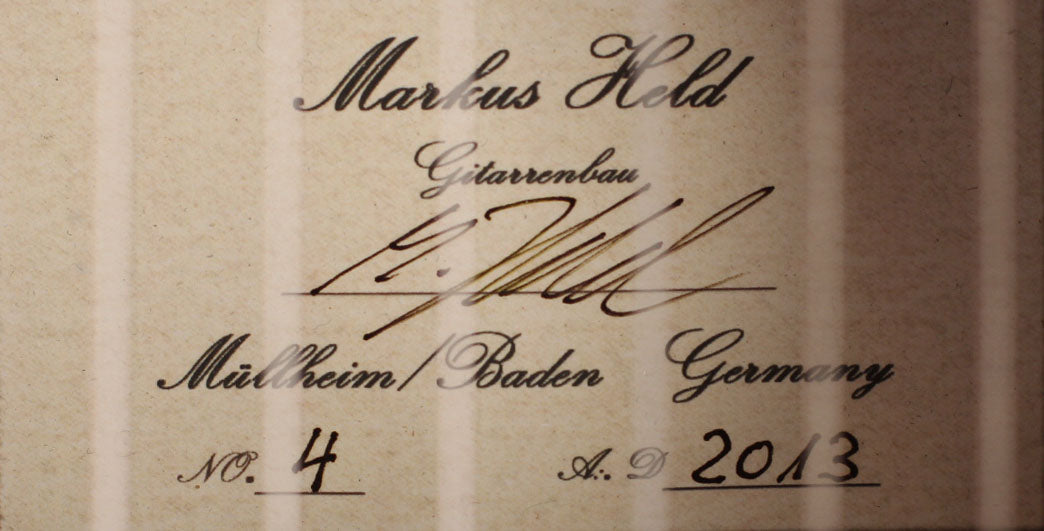 Markus Held
Gitarrenbau
M. Held
Müllheim/Baden Germany
NO. 4 A:. D 2013